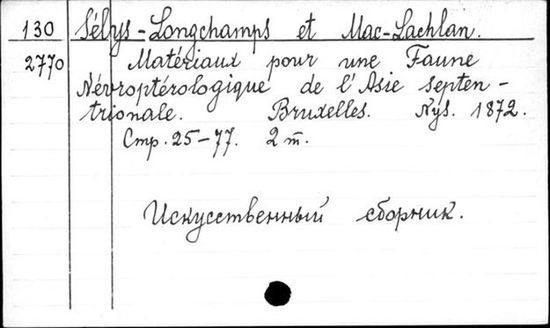 130 Sélys-Longchamps et Mac-Lachlan.
2770 Matériaux pour une Faune
Névroptérologique de l'Asie septen-
trionale. Bruxelles. Nys. 1872.
Стр. 25-77. 2 т.
Искусственный сборник.